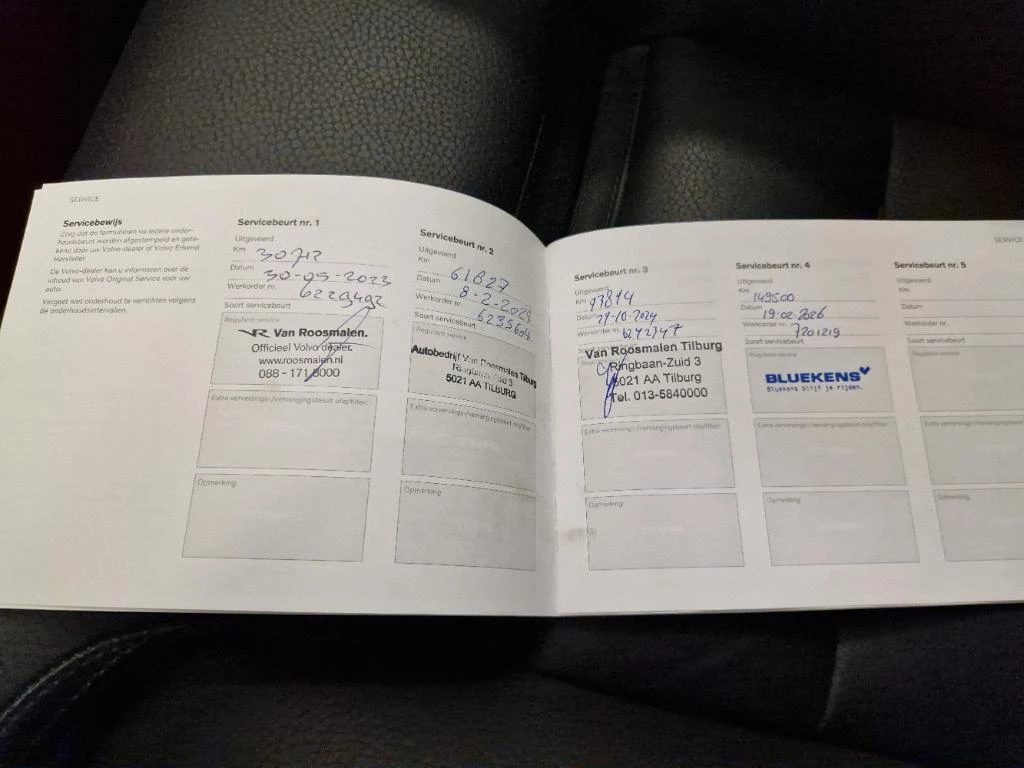 SERVICE
Servicebewijs
Zorg dat de formulieren na iedere onder-
houdsbeurt worden afgestempeld en gete-
kend door uw Volvo-dealer of Volvo Erkend
Hersteller.
De Volvo-dealer kan u informeren over de
inhoud van Volvo Original Service voor uw
auto.
Vergeet niet onderhoud te verrichten volgens
de onderhoudsintervallen.
Servicebeurt nr. 1
Uitgevoerd
Km 30712
Datum 30-05-2023
Werkorder nr. 6229492
Soort servicebeurt
Reguliere service
VR Van Roosmalen.
Officieel Volvo dealer.
www.roosmalen.nl
088 - 171 8000
Extra verversings-/vervangingsbeurt olie/filter:
Opmerking
Servicebeurt nr. 2
Uitgevoerd
Km 61827
Datum 8-2-2024
Werkorder nr. 6235604
Soort servicebeurt
Reguliere service
Autobedrijf Van Roosmalen Tilburg
Ringbaan-Zuid 3
5021 AA TILBURG
Extra verversings-/vervangingsbeurt olie/filter:
Opmerking
SERVICE
Servicebeurt nr. 3
Uitgevoerd
Km 93814
Datum 29-10-2024
Werkorder nr. 6242347
Van Roosmalen Tilburg
Ringbaan-Zuid 3
5021 AA Tilburg
Tel. 013-5840000
Extra verversings-/vervangingsbeurt olie/filter:
Opmerking
Servicebeurt nr. 4
Uitgevoerd
Km 149500
Datum 19-02-2026
Werkorder nr. 7201219
Soort servicebeurt
Reguliere service
BLUEKENS
Bluekens blijf je rijden.
Extra verversings-/vervangingsbeurt olie/filter:
Opmerking
Servicebeurt nr. 5
Uitgevoerd
Km
Datum
Werkorder nr.
Soort servicebeurt
Reguliere service
Extra verversings-/vervangingsbeurt
Opmerking